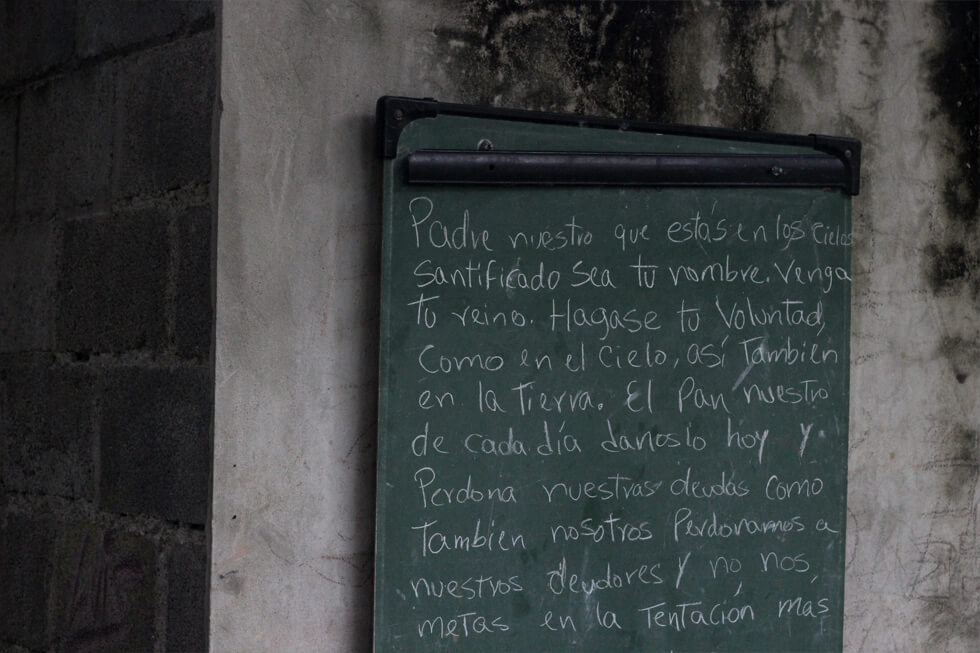 Padre nuestro que estás en los cielos
Santificado Sea tu nombre. Venga
Tu reino. Hagase tu Voluntad,
Como en el Cielo, así También
en la Tierra. El Pan nuestro
de cada día danoslo hoy y
Perdona nuestras deudas Como
También nosotros Perdonamos a
nuestros deudores y no nos
metas en la Tentación mas